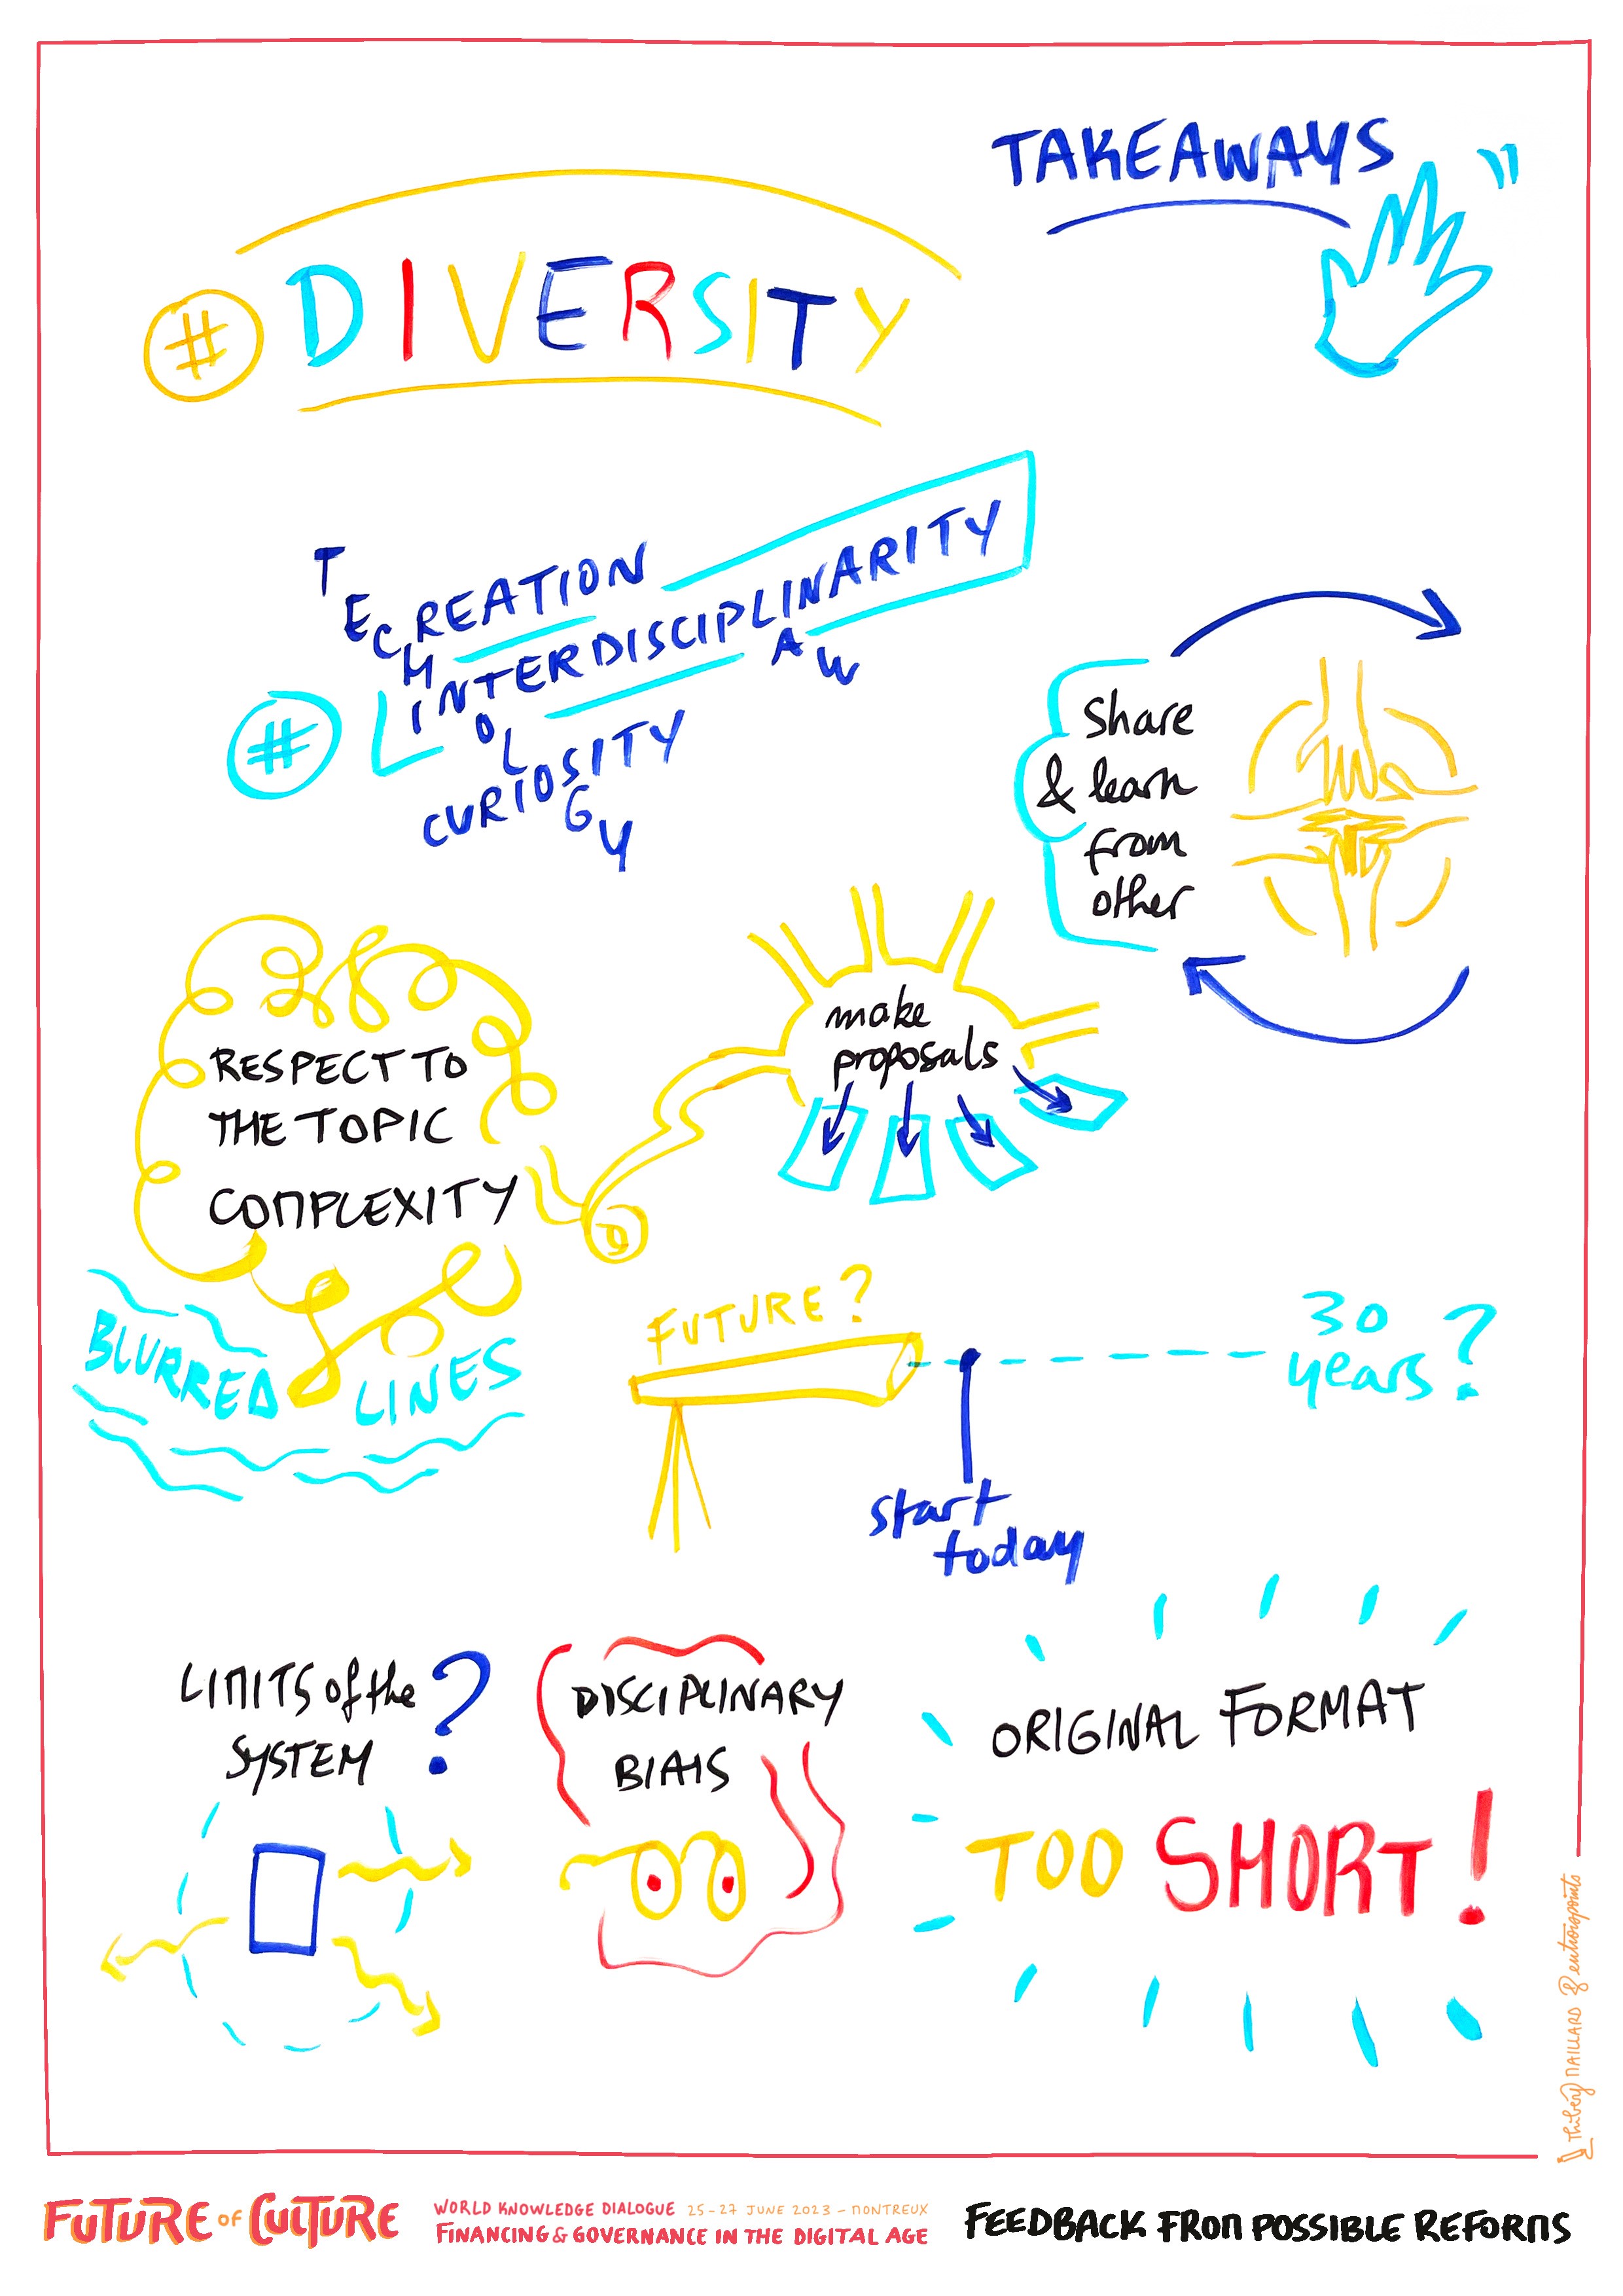 TAKEAWAYS
# DIVERSITY
TECHNOLOGY
CREATION
INTERDISCIPLINARITY
LAW
# CURIOSITY
Share
& learn
from
other
RESPECT TO
THE TOPIC
COMPLEXITY
make
proposals
BLURRED LINES
FUTURE?
30
years?
start
today
LIMITS of the
SYSTEM ?
DISCIPLINARY
BIAIS
ORIGINAL FORMAT
TOO SHORT!
MAILLARD
FUTURE OF CULTURE
WORLD KNOWLEDGE DIALOGUE 25-27 JUNE 2023 – MONTREUX
FINANCING & GOVERNANCE IN THE DIGITAL AGE
FEEDBACK FROM POSSIBLE REFORMS